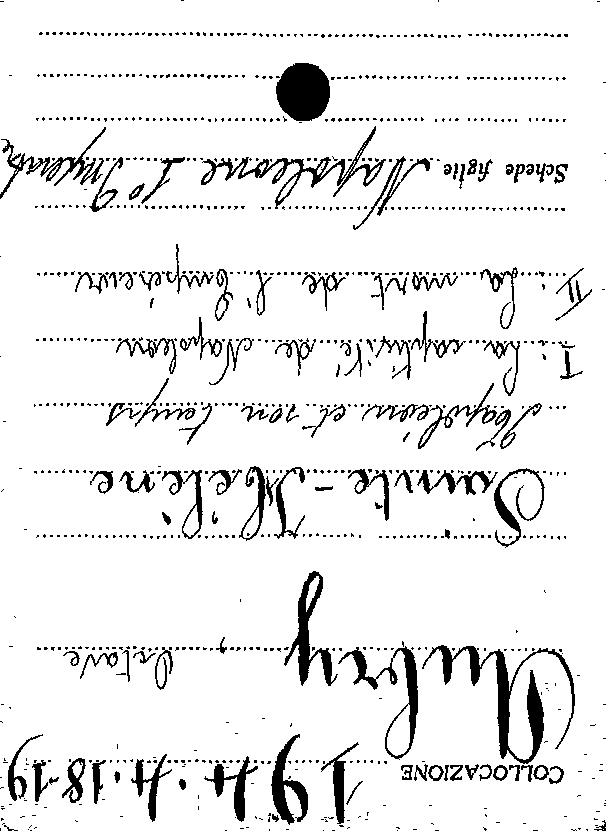 COLLOCAZIONE 194.4.18-19
Aubry, Octave
Sainte-Hélène
Napoléon et son temps
I: La captivité de Napoléon
II: La mort de l'Empereur
Schede figlie Napoleone I° Imperatore